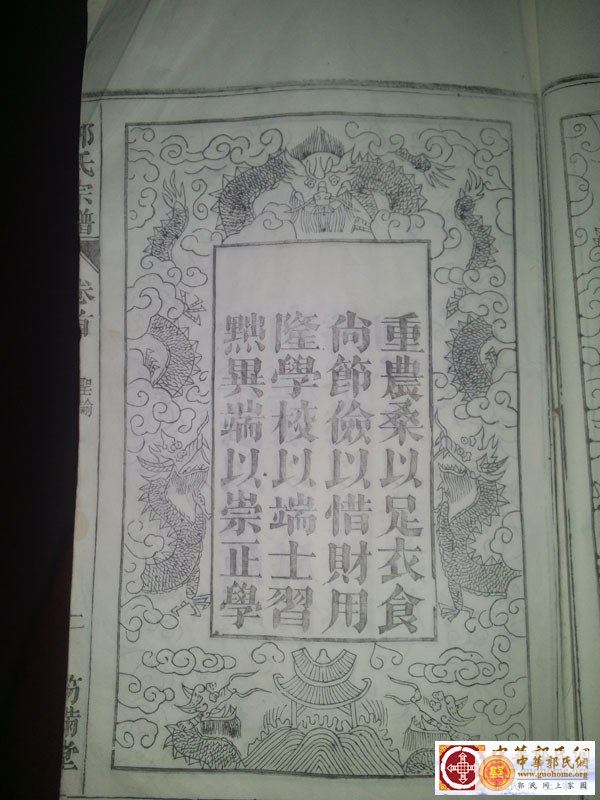 重農桑以足衣食
尚節儉以惜財用
隆學校以端士習
黜異端以崇正學
郭氏宗譜
卷首
聖諭
中華郭氏網
www.guohome.org
郭氏网上家園